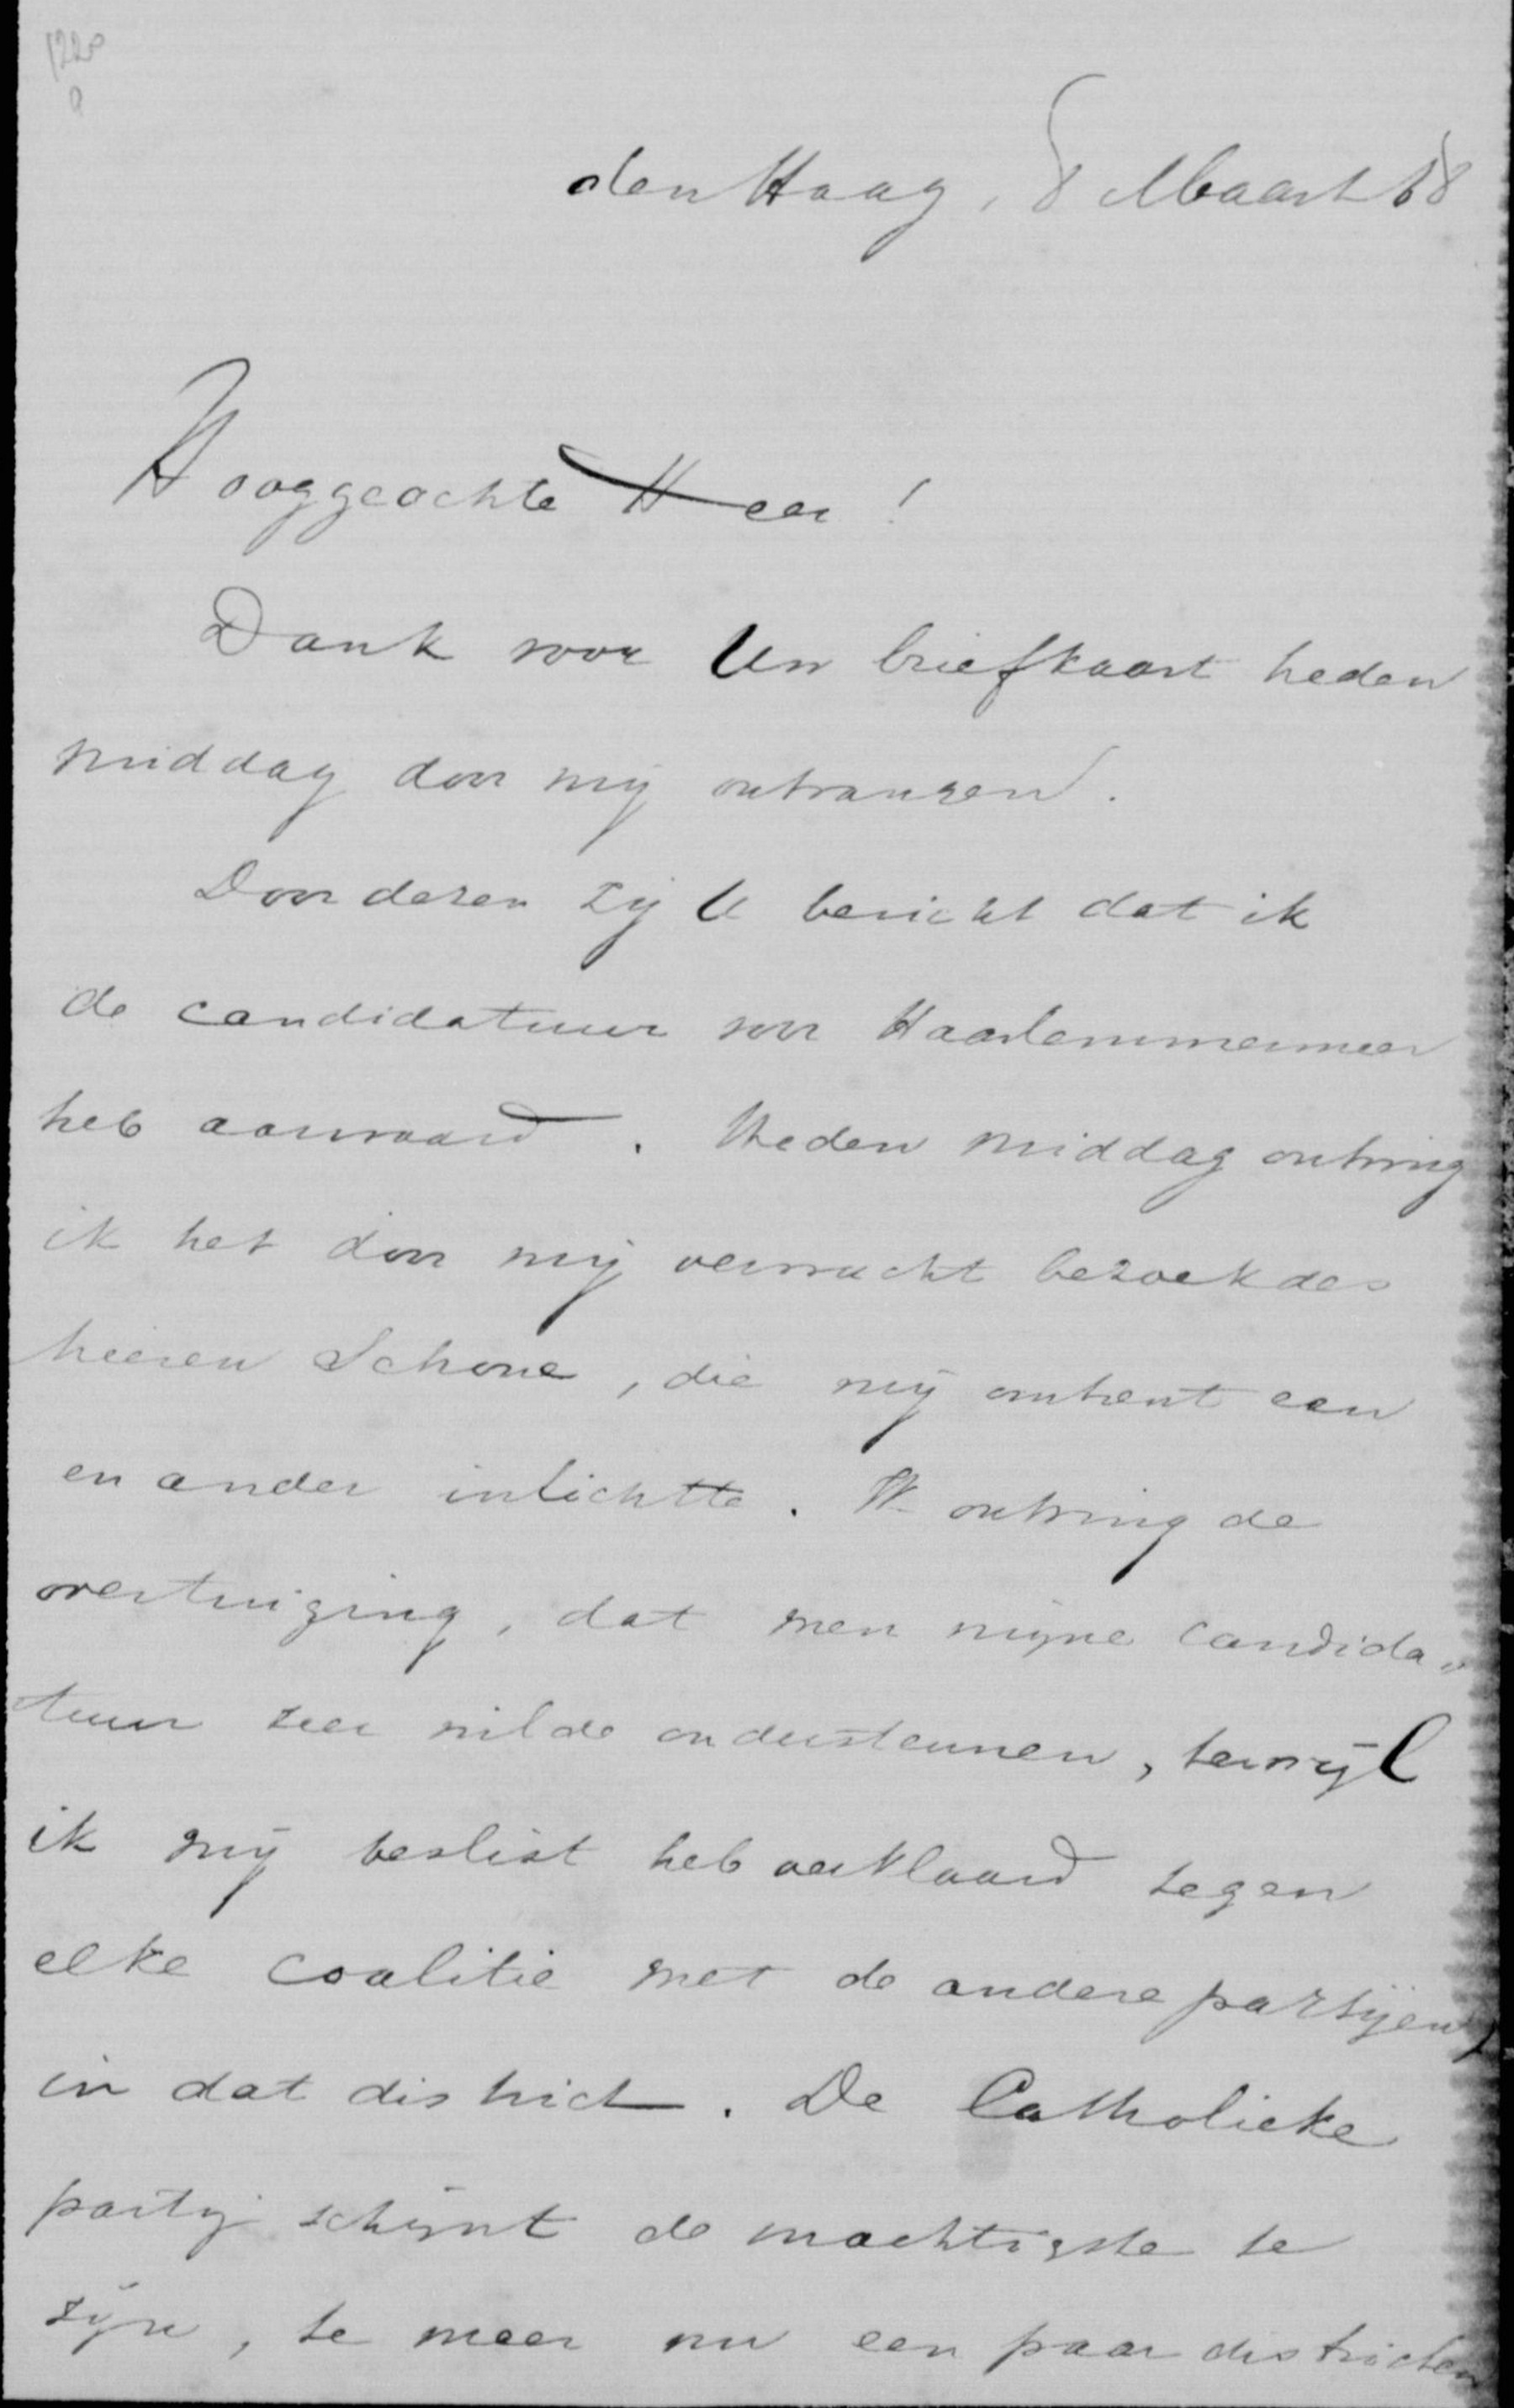 den Haag, 8 Maart 88
Hooggeachte Heer!
Dank voor Uw briefkaart heden
middag door mij ontvangen.
Door dezen zij U bericht dat ik
de candidatuur voor Haarlemmermeer
heb aanvaard. Heden middag ontving
ik het door mij verwacht bezoek des
heeren Schone, die mij omtrent een
en ander inlichtte. Ik ontving de
overtuiging, dat men mijne candida„
tuur zeer wilde ondersteunen, terwijl
ik mij beslist heb verklaard tegen
elke coalitie met de andere partijen
in dat district. De Catholieke
partij schijnt de machtigste te
zijn, te meer nu een paar districten